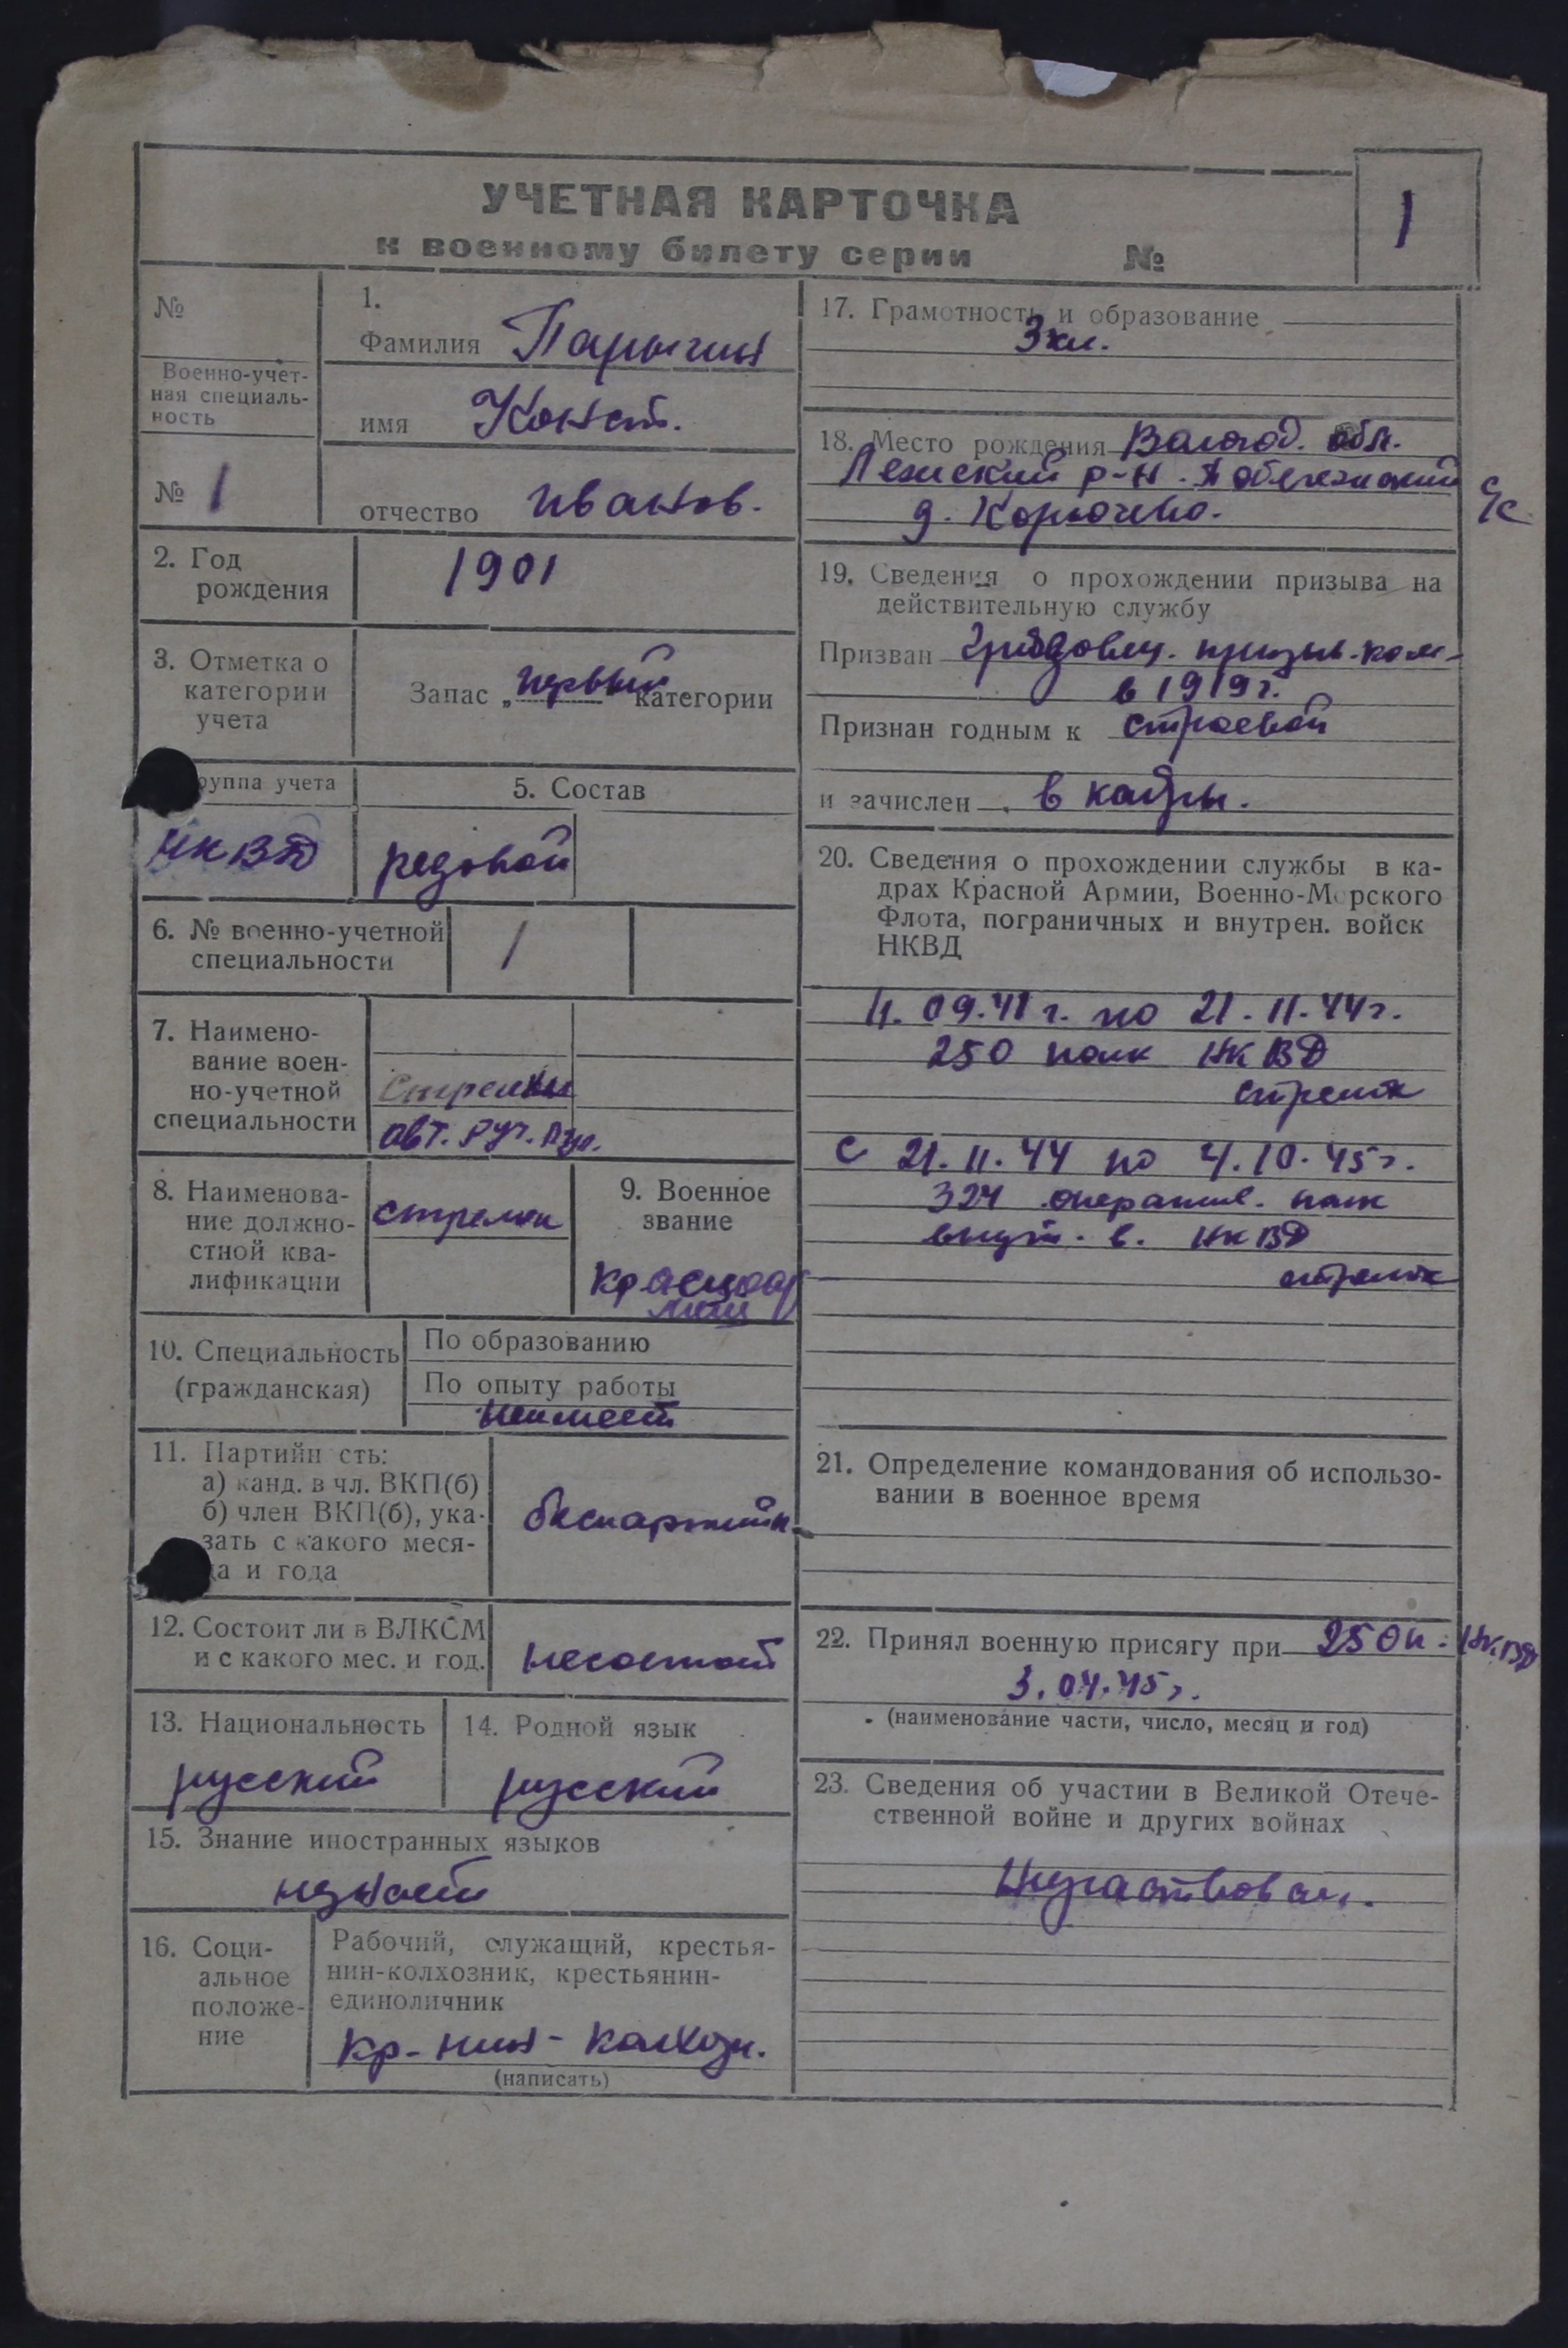 УЧЕТНАЯ КАРТОЧКА
к военному билету серии №
1
№
Военно-учет-
ная специаль-
ность
№ 1
1.
Фамилия Парыгин
имя Конст.
отчество Иванов.
2. Год
рождения
1901
3. Отметка о
категории
учета
Запас „первый категории
руппа учета
НКВД
5. Состав
редовой
6. № военно-учетной
специальности
1
7. Наимено-
вание воен-
но-учетной
специальности
Стрелки
авт. руч. пул.
8. Наименова-
ние должно-
стной ква-
лификации
стрелок
9. Военное
звание
красноар
меец
10. Специальность
(гражданская)
По образованию
По опыту работы
неимеет
11. Партийн сть:
а) канд. в чл. ВКП(б)
б) член ВКП(б), ука-
зать с какого меся-
ца и года
беспартийн
12. Состоит ли в ВЛКСМ
и с какого мес. и год.
несостоит
13. Национальность
русский
14. Родной язык
русский
15. Знание иностранных языков
незнает
16. Соци-
альное
положе-
ние
Рабочий, служащий, крестья-
нин-колхозник, крестьянин-
единоличник
кр-нин-колхозн.
(написать)
17. Грамотность и образование
3 кл.
18. Место рождения Вологод. обл.
Лежский р-н. с/с
д. Корючево.
19. Сведения о прохождении призыва на
действительную службу
Призван Грязовец. призыв. ком-
в 1919 г.
Признан годным к строевой
и зачислен в кадры.
20. Сведения о прохождении службы в ка-
драх Красной Армии, Военно-Морского
Флота, пограничных и внутрен. войск
НКВД
11.09.41 г. по 21.11.44 г.
250 полк НКВД
стрелок
с 21.11.44 по 4.10.45 г.
324 оператив. полк
внут. в. НКВД
стрелок
21. Определение командования об использо-
вании в военное время
22. Принял военную присягу при 250 п. НКВД
3.04.45 г.
(наименование части, число, месяц и год)
23. Сведения об участии в Великой Отече-
ственной войне и других войнах
Неучаствовал.